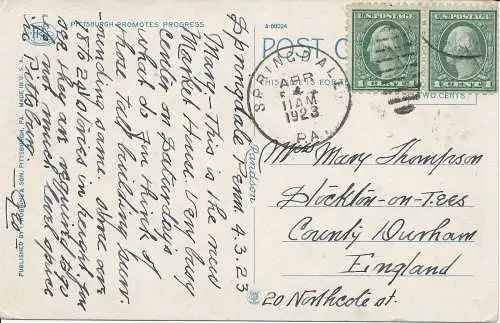 PITTSBURGH PROMOTES PROGRESS.
A-89024
POST C
Springdale Penn. 4.3.23
Mary - This is the new
Market House. Very busy
center on Saturdays
what do you think of
those tall building hum.
running some. Some are
18 to 20 stories in height. you
see they are required for
not much land space
in Pittsburg.
PUBLISHED BY I. ROBBINS & SON, PITTSBURGH, PA. MADE IN U. S. A.
SPRINGDALE
APR
4
11 AM
1923
PA.
U.S. POSTAGE
1 CENT 1
U.S. POSTAGE
1 CENT 1
TWO CENTS
Miss Mary Thompson
Stockton-on-Tees
County Durham
England
20 Northcote st.